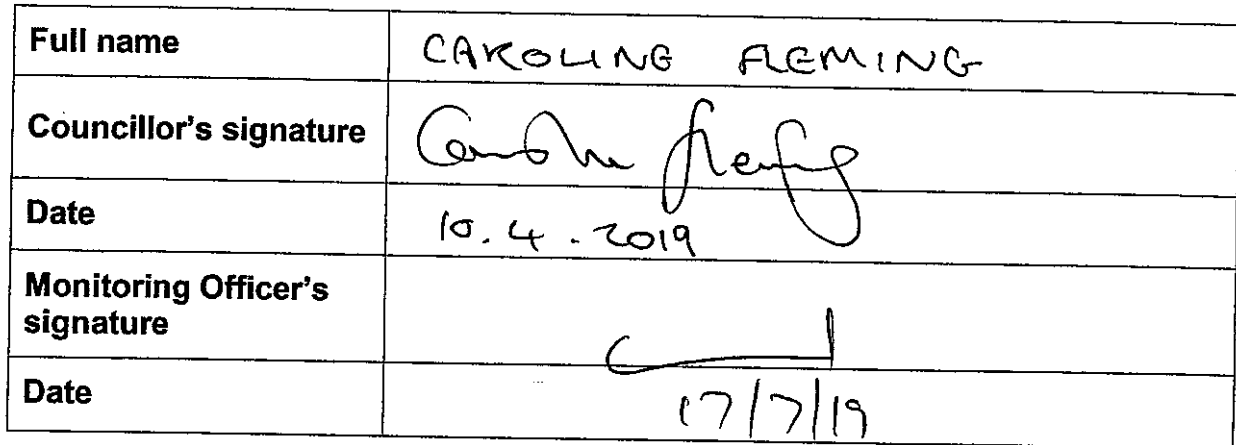 Full name
CAROLINE FLEMING
Councillor's signature
Caroline Fleming
Date
10.4.2019
Monitoring Officer's
signature
Date
17/7/19